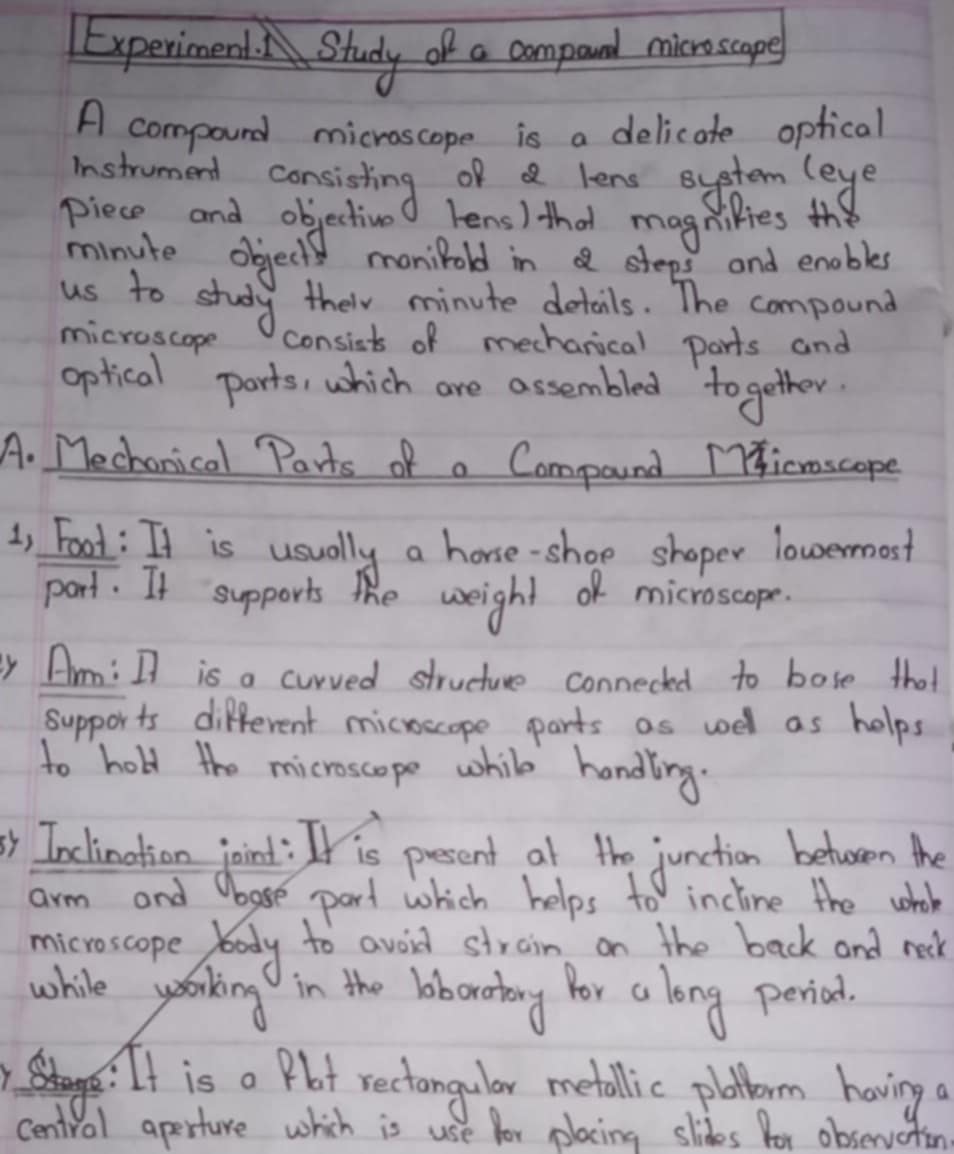 Experiment.1 Study of a compound microscope
A compound microscope is a delicate optical
Instrument consisting of 2 lens system (eye
piece and objective lens) that magnifies the
minute objects manifold in 2 steps and enables
us to study their minute details. The compound
microscope consists of mechanical parts and
optical parts, which are assembled together.
A. Mechanical Parts of a Compound Microscope
1, Foot: It is usually a horse-shoe shaper lowermost
part. It supports the weight of microscope.
Arm: It is a curved structure connected to base that
supports different microscope parts as well as helps
to hold the microscope while handling.
3, Inclination joint: It is present at the junction between the
arm and base part which helps to incline the whole
microscope body to avoid strain on the back and neck
while working in the laboratory for a long period.
Stage: It is a flat rectangular metallic platform having a
central aperture which is use for placing slides for observation.